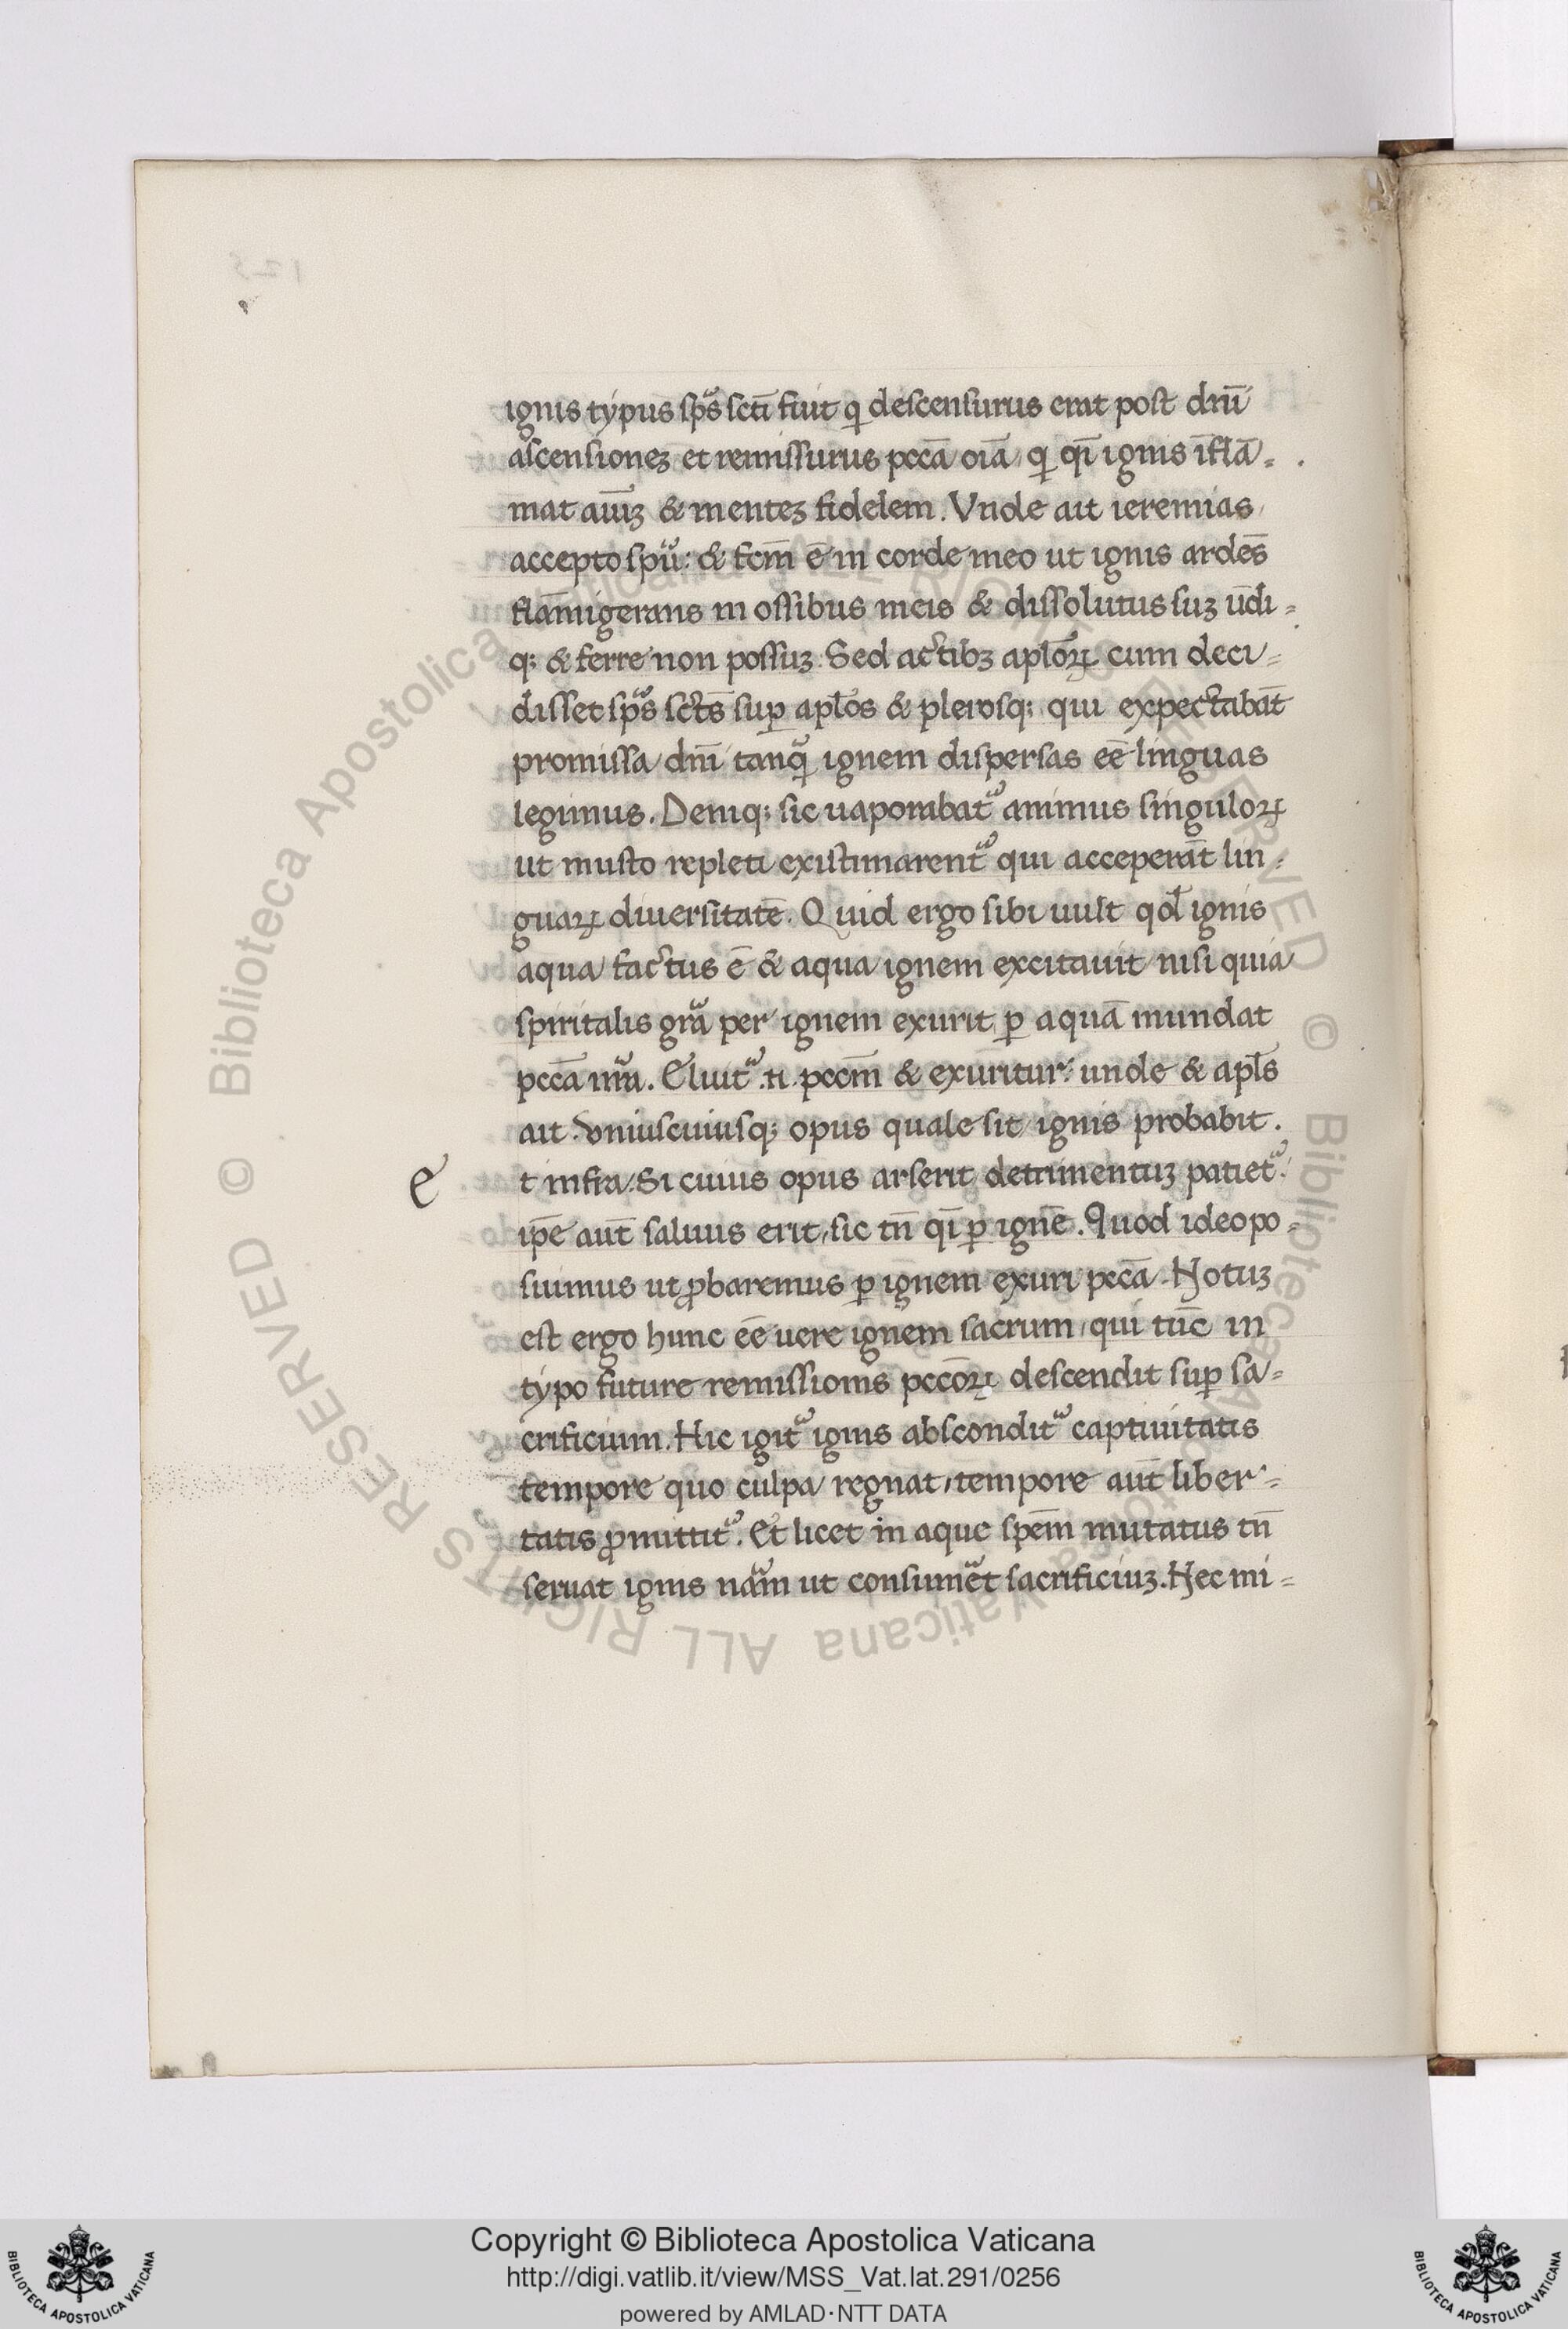 ignis typus sp̄s scti fuit q̇ descensurus erat post dn̄i
ascensionez et remissurus pccā oīa, q̇ q̄i ignis īflā=
mat aīuz & mentez fidelem. Vnde ait ieremias
accepto spū: & fcm̄ ē in corde meo ut ignis ardēs
flāmigerans in ossibus meis & dissolutus suz ūdi=
q; & ferre non possuz. Sed actibz aplōꝝ cum deci=
disset sp̄s sctēs suꝑ aplōs & plerosq; qui expectabāt
promissa dn̄i tanq̄ ignem dispersas eē linguas
legimus. Deniq; sic uaporabat᷑ animus singuloꝝ
ut musto repleti existimarent᷑ qui acceperāt lin=
guaꝝ diuersitatē. Quid ergo sibi uult qd̄ ignis
aqua factus ē & aqua ignem excitauit nisi quia
spiritalis gr̄a per ignem exurit, ꝑ aquā mundat
pccā nr̄a. Eluit᷑ .n. pccm̄ & exuritur: unde & apl̄s
ait. Vniuscuiusq; opus quale sit ignis probabit.
E t infra. Si cuius opus arserit detrimentuz patiet᷑:
ip̄e aūt saluus erit, sic tn̄ q̄i ꝑ ignē. Quod ideo po=
suimus ut ꝓbaremus ꝑ ignem exuri pccā. Notuz
est ergo hunc eē uere ignem sacrum, qui tūc in
typo future remissionis pccōꝝ descendit suꝑ sa=
crificium. Hic igit᷑ ignis abscondit᷑ captiuitatis
tempore quo culpa regnat, tempore aūt liber=
tatis ꝓmittit᷑. Et licet in aque spēm mutatus tn̄
seruat ignis nām ut consumēt sacrificiuz. Nec mi=
Copyright © Biblioteca Apostolica Vaticana
http://digi.vatlib.it/view/MSS_Vat.lat.291/0256
powered by AMLAD·NTT DATA
BIBLIOTECA APOSTOLICA VATICANA
BIBLIOTECA APOSTOLICA VATICANA
© Biblioteca Apostolica Vaticana ALL RIGHTS RESERVED © Biblioteca Apostolica Vaticana ALL RIGHTS RESERVED